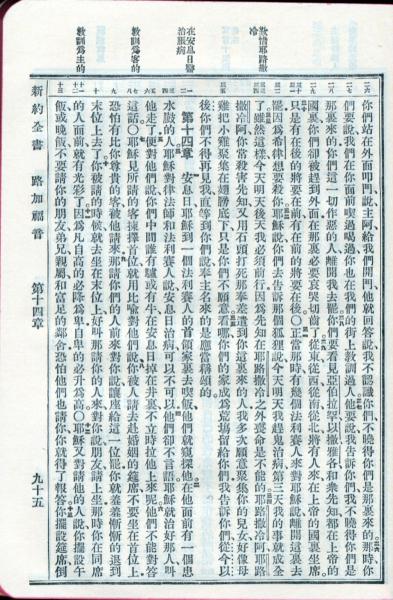 歎惜耶路撒
冷
在安息日醫
治脹病
教訓爲客的
教訓爲主的
你們站在外面叩門說主阿給我們開門他就回答說我不認識你們不曉得你們是那裏來的那時你
們要說我們在你面前喫過喝過你也在我們的街上教訓過人他要說我告訴你們我不曉得你們是
那裏來的你們這一切作惡的人離開我去罷你們要看見亞伯拉罕以撒雅各和衆先知都在上帝的
國裏你們卻被趕到外面在那裏必要哀哭切齒了從東從西從南從北將有人來在上帝的國裏坐席
只是有在後的將要在前有在前的將要在後○正當那時有幾個法利賽人來對耶穌說離開這裏去
罷因爲希律想要殺你耶穌說你們去告訴那個狐狸說今天明天我趕鬼治病第三天我的事就成全
了雖然這樣今天明天後天我必須前行因爲先知在耶路撒冷之外喪命是不能的耶路撒冷阿耶路
撒冷阿你常殺害先知又用石頭打死那奉差遣到你這裏來的人我多次願意聚集你的兒女好像母
雞把小雞聚集在翅膀底下只是你們不願意看哪你們的家成爲荒場留給你們我告訴你們從今以
後你們不得再見我直等到你們說奉主名來的是應當稱頌的
第十四章 安息日耶穌到一個法利賽人的首領家裏去喫飯他們就窺探他在他面前有一個患
水臌的人耶穌對律法師和法利賽人說安息日治病可以不可以他們卻不言語耶穌就治好那人叫
他走了便對他們說你們中間誰有驢或有牛在安息日掉在井裏不立時拉他上來呢他們不能對答
這話○耶穌見所請的客揀擇首位就用比喻對他們說你被人請去赴婚姻的筵席不要坐在首位上
恐怕有比你尊貴的客被他請來那請你們的人前來對你說讓座給這一位罷你就羞羞慚慚的退到
末位上去了你被請的時候就去坐在末位上好叫那請你的人來對你說朋友請上坐那時你在同席
的人面前就有光彩了因爲凡自高的必降爲卑自卑的必升爲高○耶穌又對請他的人說你擺設午
飯或晚飯不要請你的朋友弟兄親屬和富足的鄰舍恐怕他們也請你你就得了報答你擺設筵席倒
新約全書 路加福音 第十四章 九十五